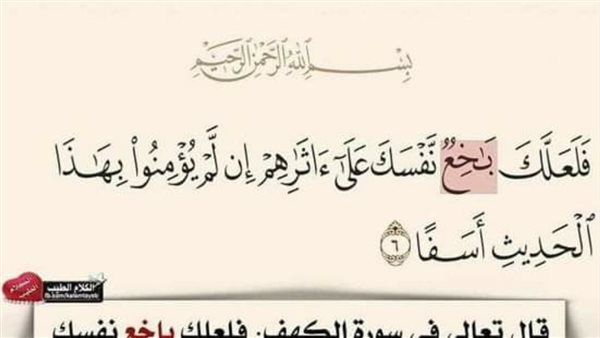 بِسْمِ اللَّهِ الرَّحْمَٰنِ الرَّحِيمِ
فَلَعَلَّكَ بَٰخِعٌ نَّفْسَكَ عَلَىٰٓ ءَاثَٰرِهِمْ إِن لَّمْ يُؤْمِنُوا۟ بِهَٰذَا
ٱلْحَدِيثِ أَسَفًا ٦
الكلام الطيب
fb.com/kalamtayeb
قال تعالى في سورة الكهف: فلعلك باخع نفسك